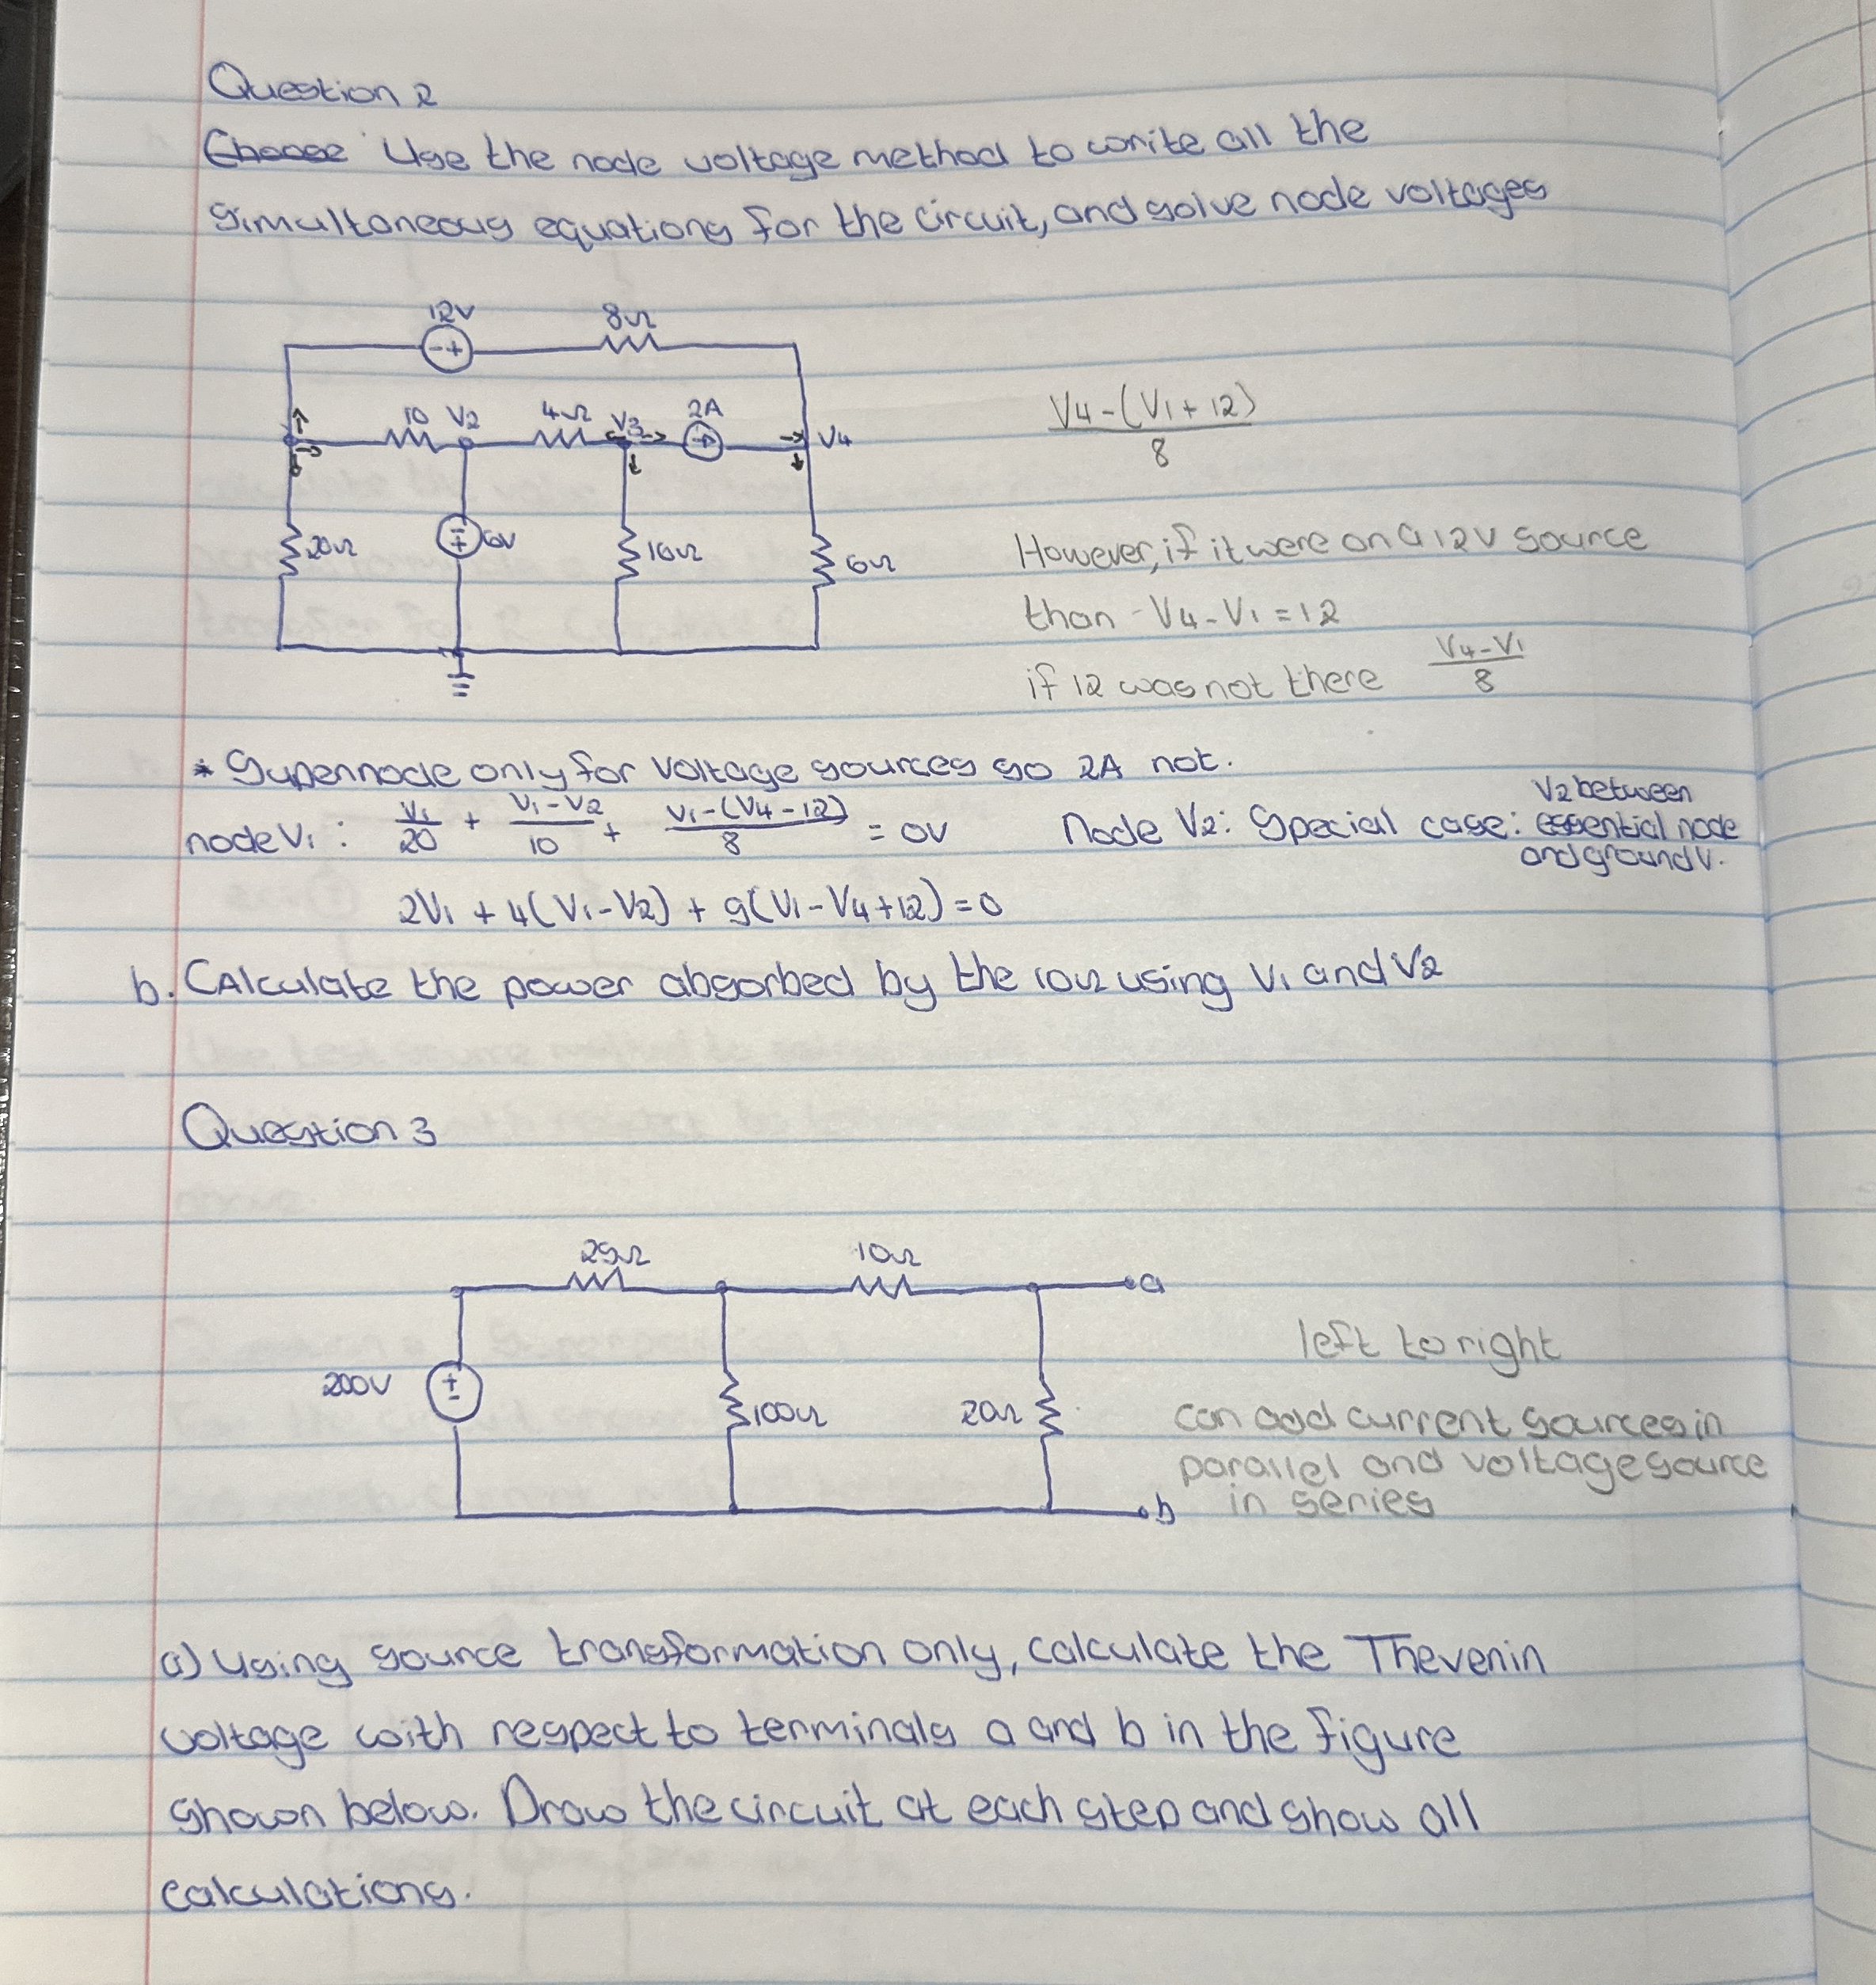 Question 2
Choose Use the node voltage method to write all the
simultaneous equations for the circuit, and solve node voltages
12V 8Ω
-+
10 V2 4Ω V3 2A V4
20Ω 6V 6Ω
V4-(V1+12)
8
However, if it were on a 12V source
than V4-V1=12
if 12 was not there V4-V1
8
* Supernode only for voltage sources so 2A not.
node V1: V1/20 + V1-V2/10 + V1-(V4-12)/8 = 0V
Node V2: Special case: V2 between
essential node
and ground V.
2V1 + 4(V1-V2) + 5(V1-V4+12)=0
b. Calculate the power absorbed by the 10Ω using V1 and V2
Question 3
25Ω 10Ω
a
200V + - 100Ω 20Ω
b
left to right
can add current sources in
parallel and voltage source
in series
a) Using source transformation only, calculate the Thevenin
voltage with respect to terminals a and b in the figure
shown below. Draw the circuit at each step and show all
calculations.